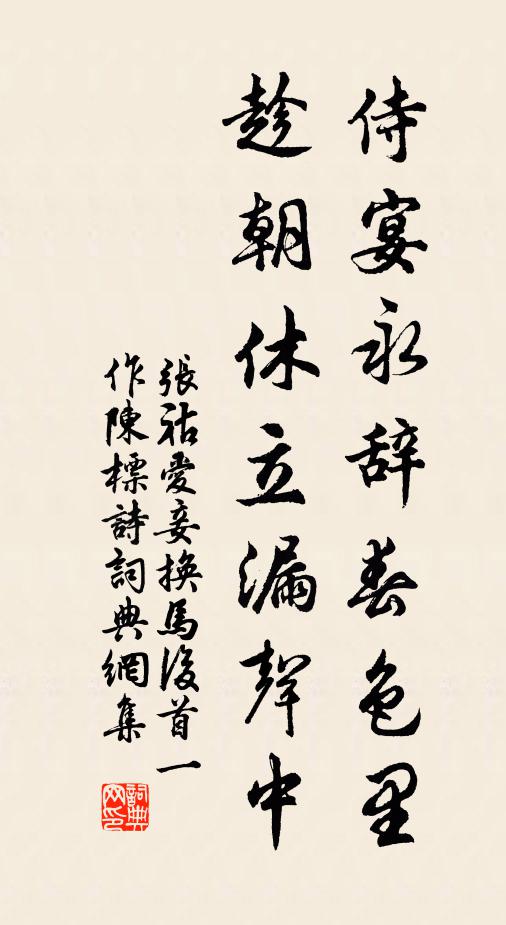 侍宴永辞春色里
趁朝休立漏聲中
張祜愛妾換馬後首一
作陳標詩詞典網集
詞典
网印